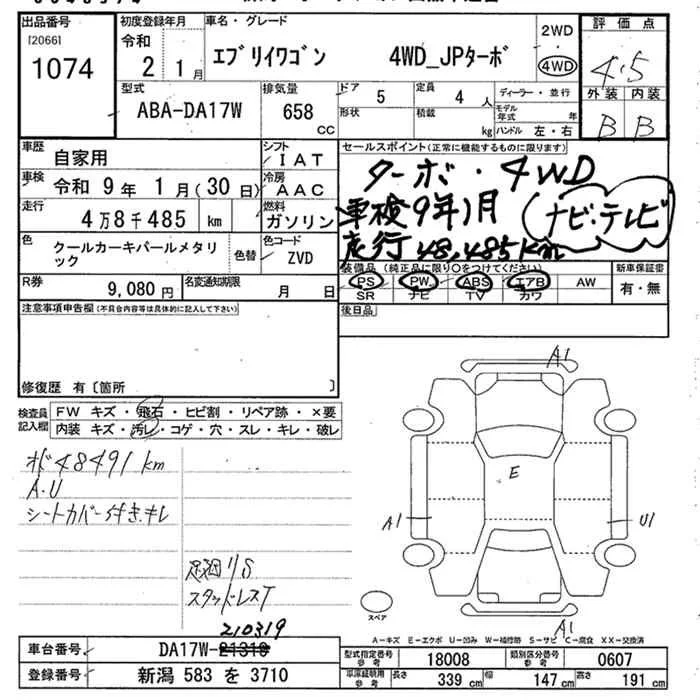 出品番号
[2066]
1074
初度登録年月
令和
2 1月
車名・グレード
エブリイワゴン 4WD_JPターボ
2WD
4WD
評価点
4.5
外装 内装
B B
型式
ABA-DA17W
排気量
658
CC
ドア
5
定員
4 人
ディーラー・並行
形状
積載
kg
モデル
年式 年
ハンドル 左・右
車歴
自家用
シフト
IAT
セールスポイント(正常に機能するものに限ります)
ターボ・4WD
車検9年1月
ナビ・テレビ
走行48,485Km
車検
令和 9年 1月(30日)
冷房
AAC
走行
4万8千485 km
燃料
ガソリン
色
クールカーキパールメタリ
ック
色替
色コード
ZVD
装備品(純正品に限り○をつけてください)
新車保証書
PS PW ABS エアB AW
有・無
SR ナビ TV カワ
R券
9,080円
名変通知期限
月 日
注意事項申告欄(不具合内容等は具体的に記入して下さい)
後日品
修復歴 有〔箇所 〕
検査員
記入欄
FW キズ・飛石・ヒビ割・リペア跡・×要
内装 キズ・汚レ・コゲ・穴・スレ・キレ・破レ
48491km
A・U
シートカバー付き・キレ
スタッドレスT
A1
E
A1
U1
スペア
A1
A-キズ E-エクボ U-凹み W-補修跡 S-サビ C-腐食 XX-交換済
210319
車台番号
DA17W-21319
登録番号
新潟 583 を 3710
型式指定番号
参考
18008
類別区分番号
参考
0607
車庫証明用
参考
長さ
339 cm
幅
147 cm
高さ
191 cm